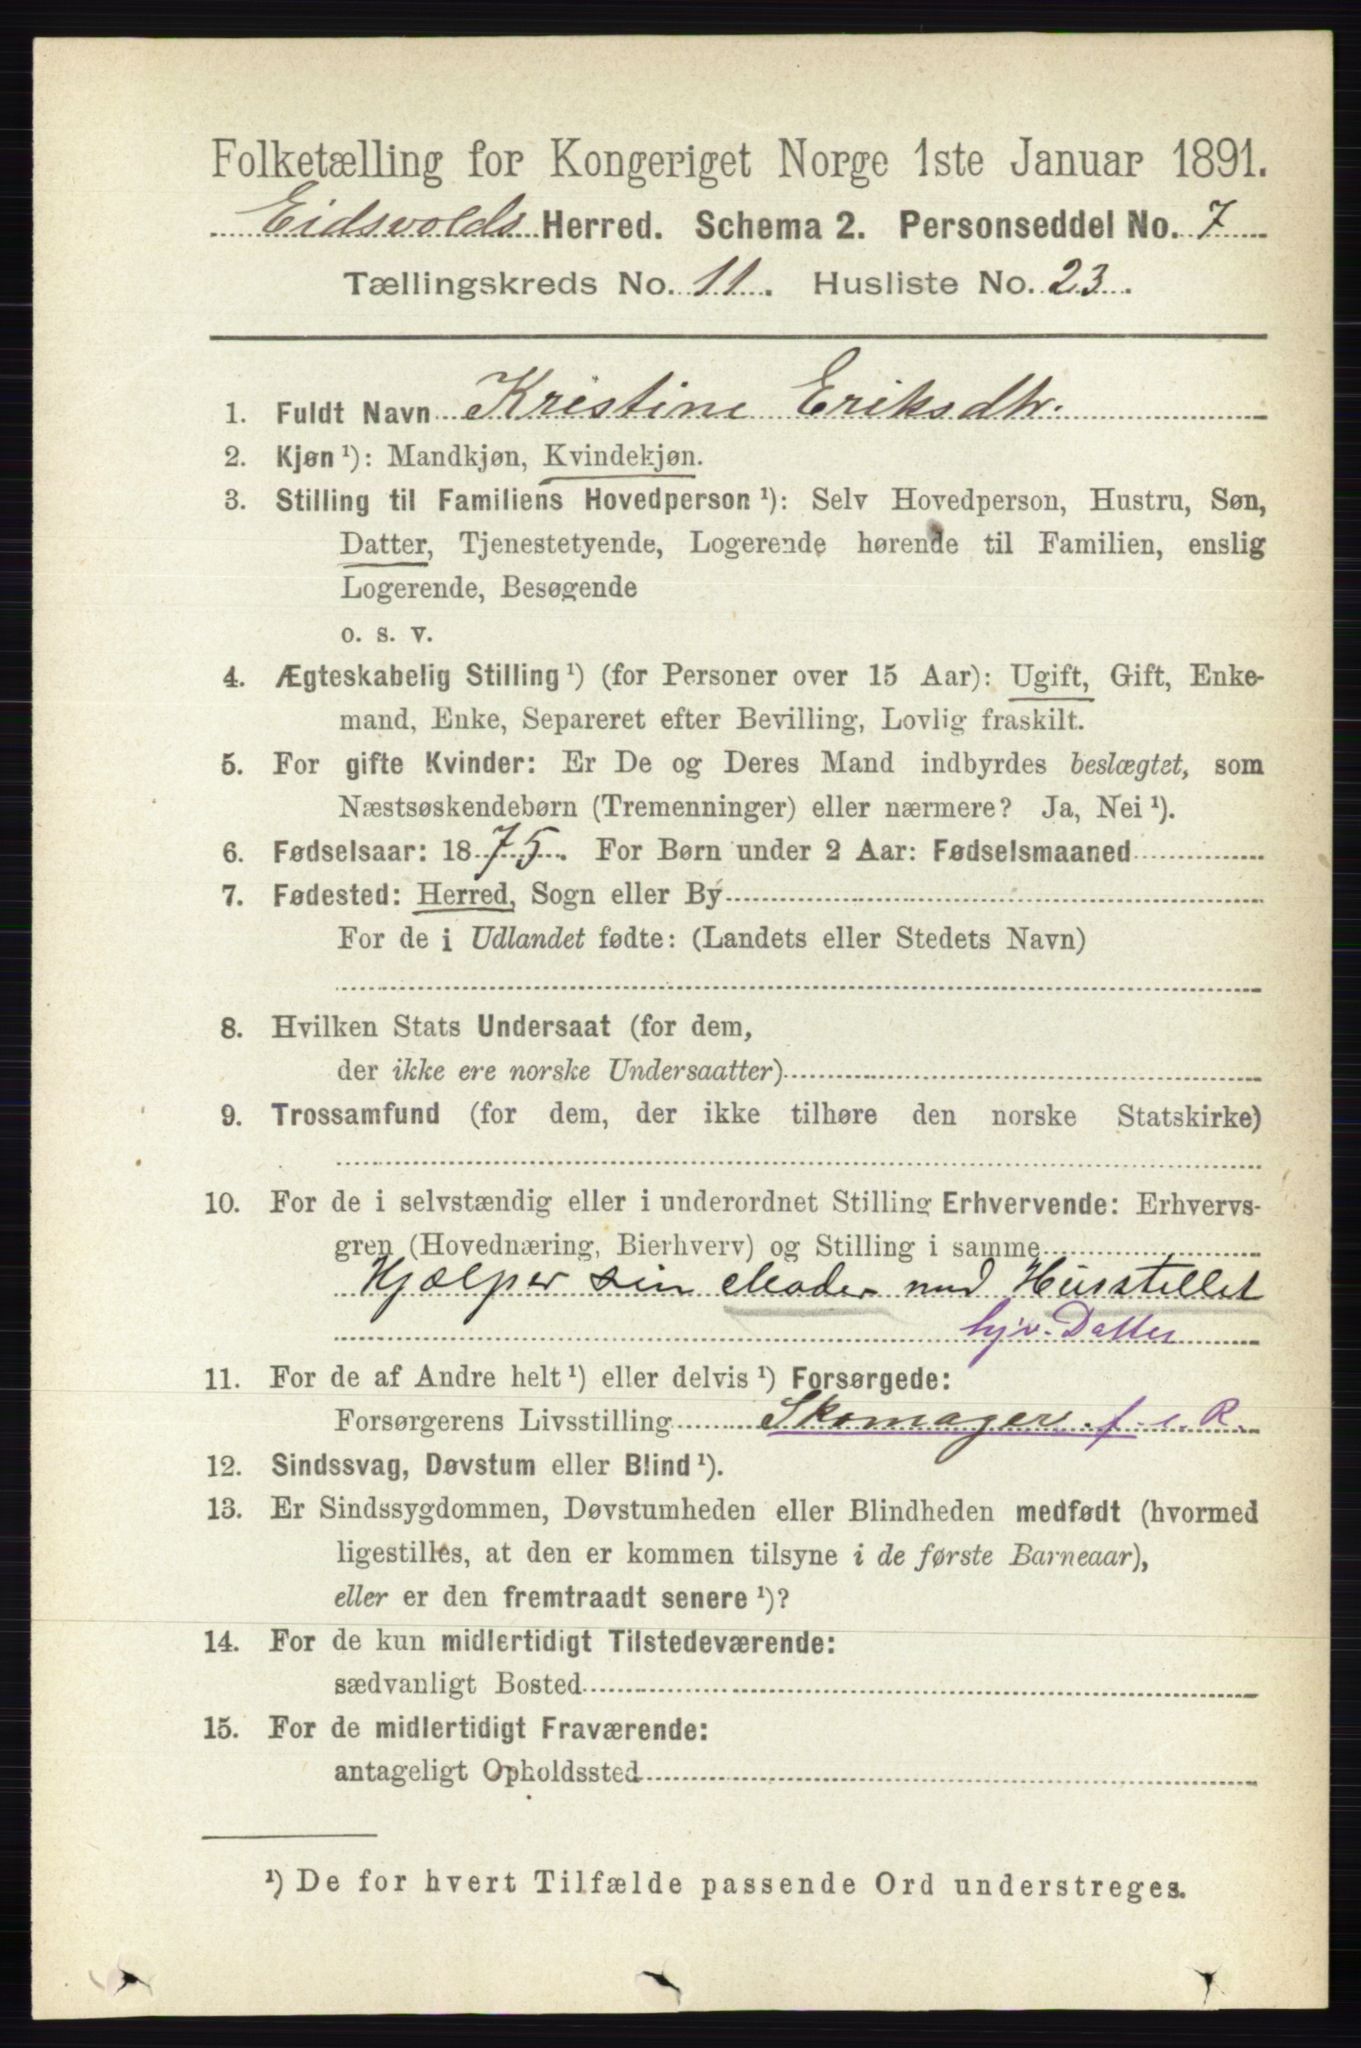 Folketælling for Kongeriget Norge 1ste Januar 1891.
Eidsvolds Herred. Schema 2. Personseddel No. 7
Tællingskreds No. 11. Husliste No. 23.
1. Fuldt Navn Kristine Eriksdtr.
2. Kjøn ¹): Mandkjøn, Kvindekjøn.
3. Stilling til Familiens Hovedperson ¹): Selv Hovedperson, Hustru, Søn,
Datter, Tjenestetyende, Logerende hørende til Familien, enslig
Logerende, Besøgende
o. s. v.
4. Ægteskabelig Stilling ¹) (for Personer over 15 Aar): Ugift, Gift, Enke-
mand, Enke, Separeret efter Bevilling, Lovlig fraskilt.
5. For gifte Kvinder: Er De og Deres Mand indbyrdes beslægtet, som
Næstsøskendebørn (Tremenninger) eller nærmere? Ja, Nei ¹).
6. Fødselsaar: 1875. For Børn under 2 Aar: Fødselsmaaned
7. Fødested: Herred, Sogn eller By
For de i Udlandet fødte: (Landets eller Stedets Navn)
8. Hvilken Stats Undersaat (for dem,
der ikke ere norske Undersaatter)
9. Trossamfund (for dem, der ikke tilhøre den norske Statskirke)
10. For de i selvstændig eller i underordnet Stilling Erhvervende: Erhvervs-
gren (Hovednæring, Bierhverv) og Stilling i samme
Hjælper sin Moder med Husstellet
hjv. Datter
11. For de af Andre helt ¹) eller delvis ¹) Forsørgede:
Forsørgerens Livsstilling Skomager f. e. R.
12. Sindssvag, Døvstum eller Blind ¹).
13. Er Sindssygdommen, Døvstumheden eller Blindheden medfødt (hvormed
ligestilles, at den er kommen tilsyne i de første Barneaar),
eller er den fremtraadt senere ¹)?
14. For de kun midlertidigt Tilstedeværende:
sædvanligt Bosted
15. For de midlertidigt Fraværende:
antageligt Opholdssted
¹) De for hvert Tilfælde passende Ord understreges.